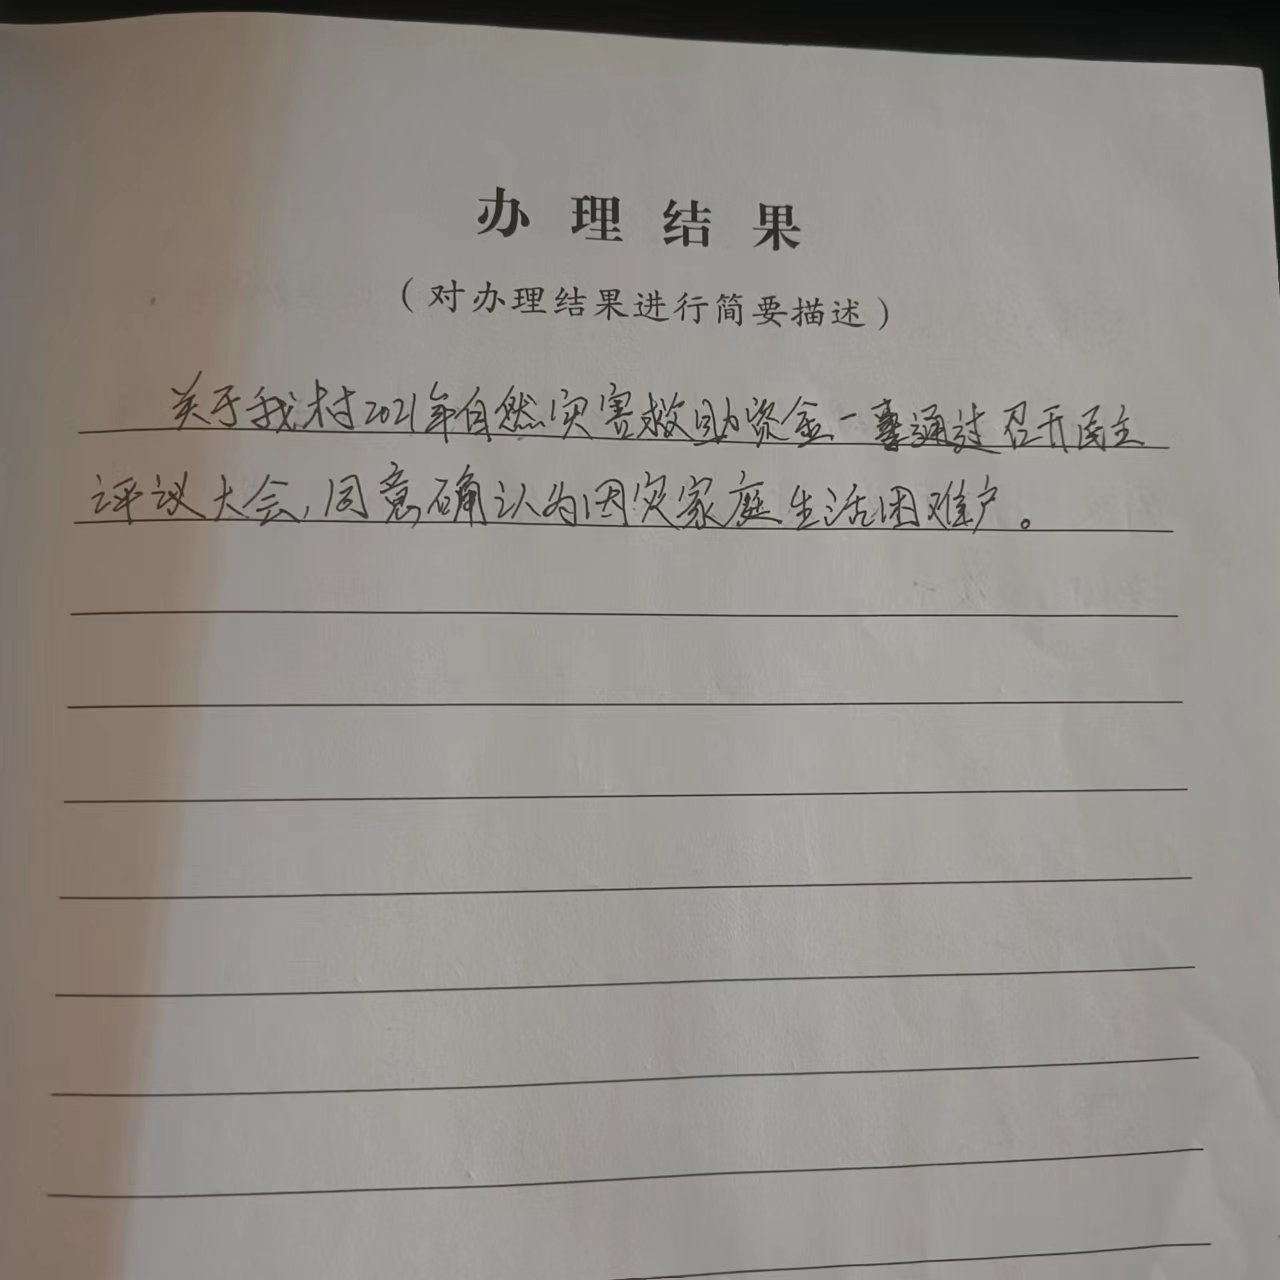 办理结果
（对办理结果进行简要描述）
关于我村2021年自然灾害救助资金一事通过召开民主
评议大会，同意确认为因灾家庭生活困难户。